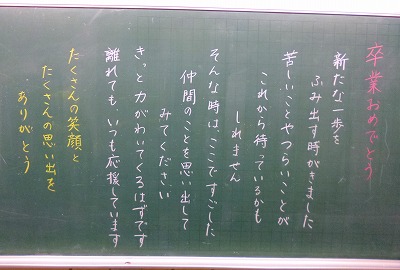 卒業おめでとう
新たな一歩を
ふみ出す時がきました
苦しいことやつらいことが
これから待っているかも
しれません
そんな時は、ここですごした
仲間のことを思い出して
みてください
きっと力がわいてくるはずです
離れても、いつも応援しています
たくさんの笑顔と
たくさんの思い出を
ありがとう